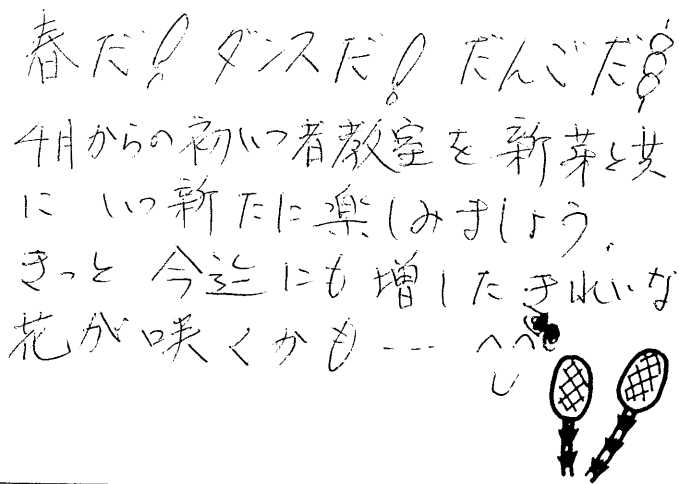 春だ! ダンスだ! だんごだ
4月からの初心者教室を新芽と共
に 心新たに楽しみましょう。
きっと 今迄にも増したきれいな
花が咲くかも---